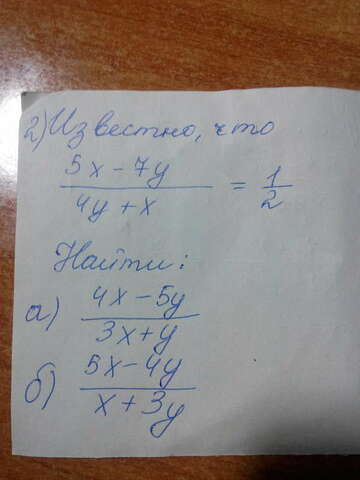 2) Известно, что
5x - 7y
4y + x
= 1
2
Найти:
а) 4x - 5y
3x + y
б) 5x - 4y
x + 3y